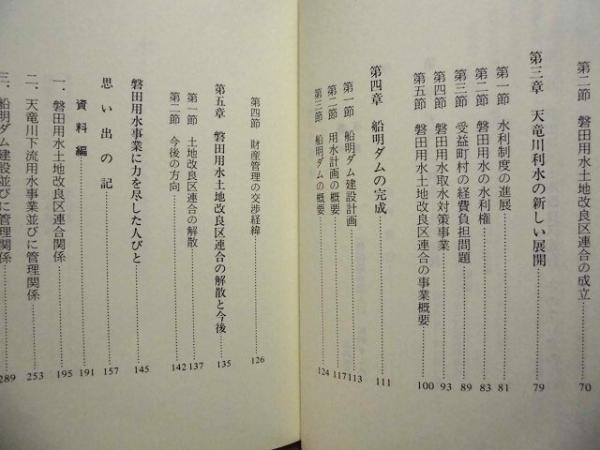 第二節　磐田用水土地改良区連合の成立……70
第三章　天竜川利水の新しい展開……79
第一節　水利制度の進展……81
第二節　磐田用水の水利権……83
第三節　受益町村の経費負担問題……89
第四節　磐田用水取水対策事業……93
第五節　磐田用水土地改良区連合の事業概要……100
第四章　船明ダムの完成……111
第一節　船明ダム建設計画……113
第二節　用水計画の概要……117
第三節　船明ダムの概要……124
第四節　財産管理の交渉経緯……126
第五章　磐田用水土地改良区連合の解散と今後……135
第一節　土地改良区連合の解散……137
第二節　今後の方向……142
磐田用水事業に力を尽した人びと……145
思い出の記……157
資料編……191
一、磐田用水土地改良区連合関係……195
二、天竜川下流用水事業並びに管理関係……253
三、船明ダム建設並びに管理関係……289